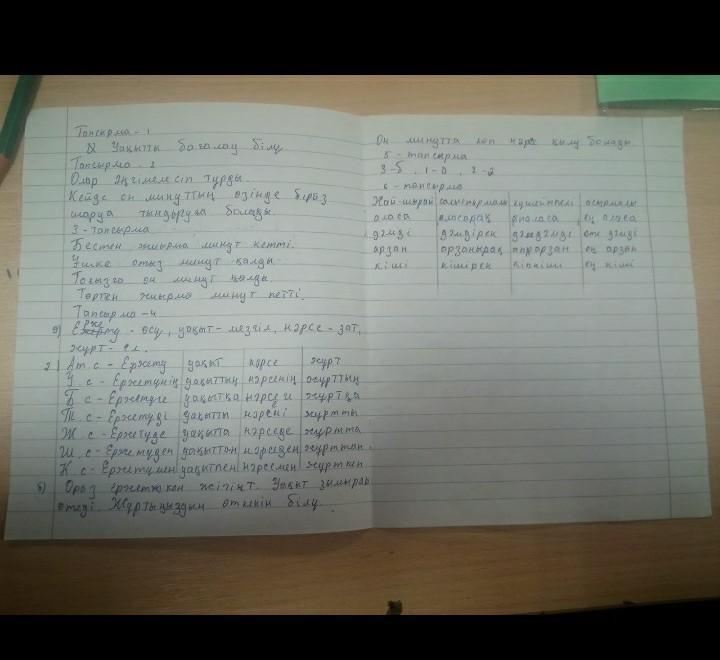 Тапсырма - 1
Уақытты бағалау білу.
Тапсырма. 2
Олар әңгімелесіп тұрды.
Кейде он минуттың өзінде біраз
шаруа тындыруға болады.
3 - тапсырма
Бестен жиырма минут кетті.
Үшке отыз минут қалды.
Тоғызға он минут қалды.
Төртен жиырма минут петті.
Тапсырма - 4
а) Ержету - өсу, уақыт - мезгіл, нәрсе - зат,
жұрт - ел.
2) Ат. с - Ержету уақыт нәрсе жұрт
І. с - Ержетудің уақыттың нәрсенің жұрттың
Б. с - Ержетуге уақытқа нәрсеге жұртқа
Т. с - Ержетуді уақытты нәрсені жұртты
Ж. с - Ержетуде уақытта нәрседе жұртта
Ш. с - Ержетуден уақыттан нәрседен жұрттан.
К. с - Ержетумен уақытпен нәрсемен жұртпен
б) Ораз ержеткен жігіт. Уақыт зымырап
өтеді. Жұртыңыздың өткенін білу.
Он минутта көп нәрсе қылу болады.
5 - тапсырма
3-б, 1-0, 2-2
6 - тапсырма
Жай-шырай салыстырмалы күшейтпелі асырмалы
аласа аласарақ ең аласа
дәмді дәмдірек өте дәмді
арзан арзанырақ ең арзан
кіші кішірек кіпкіші ең кіші